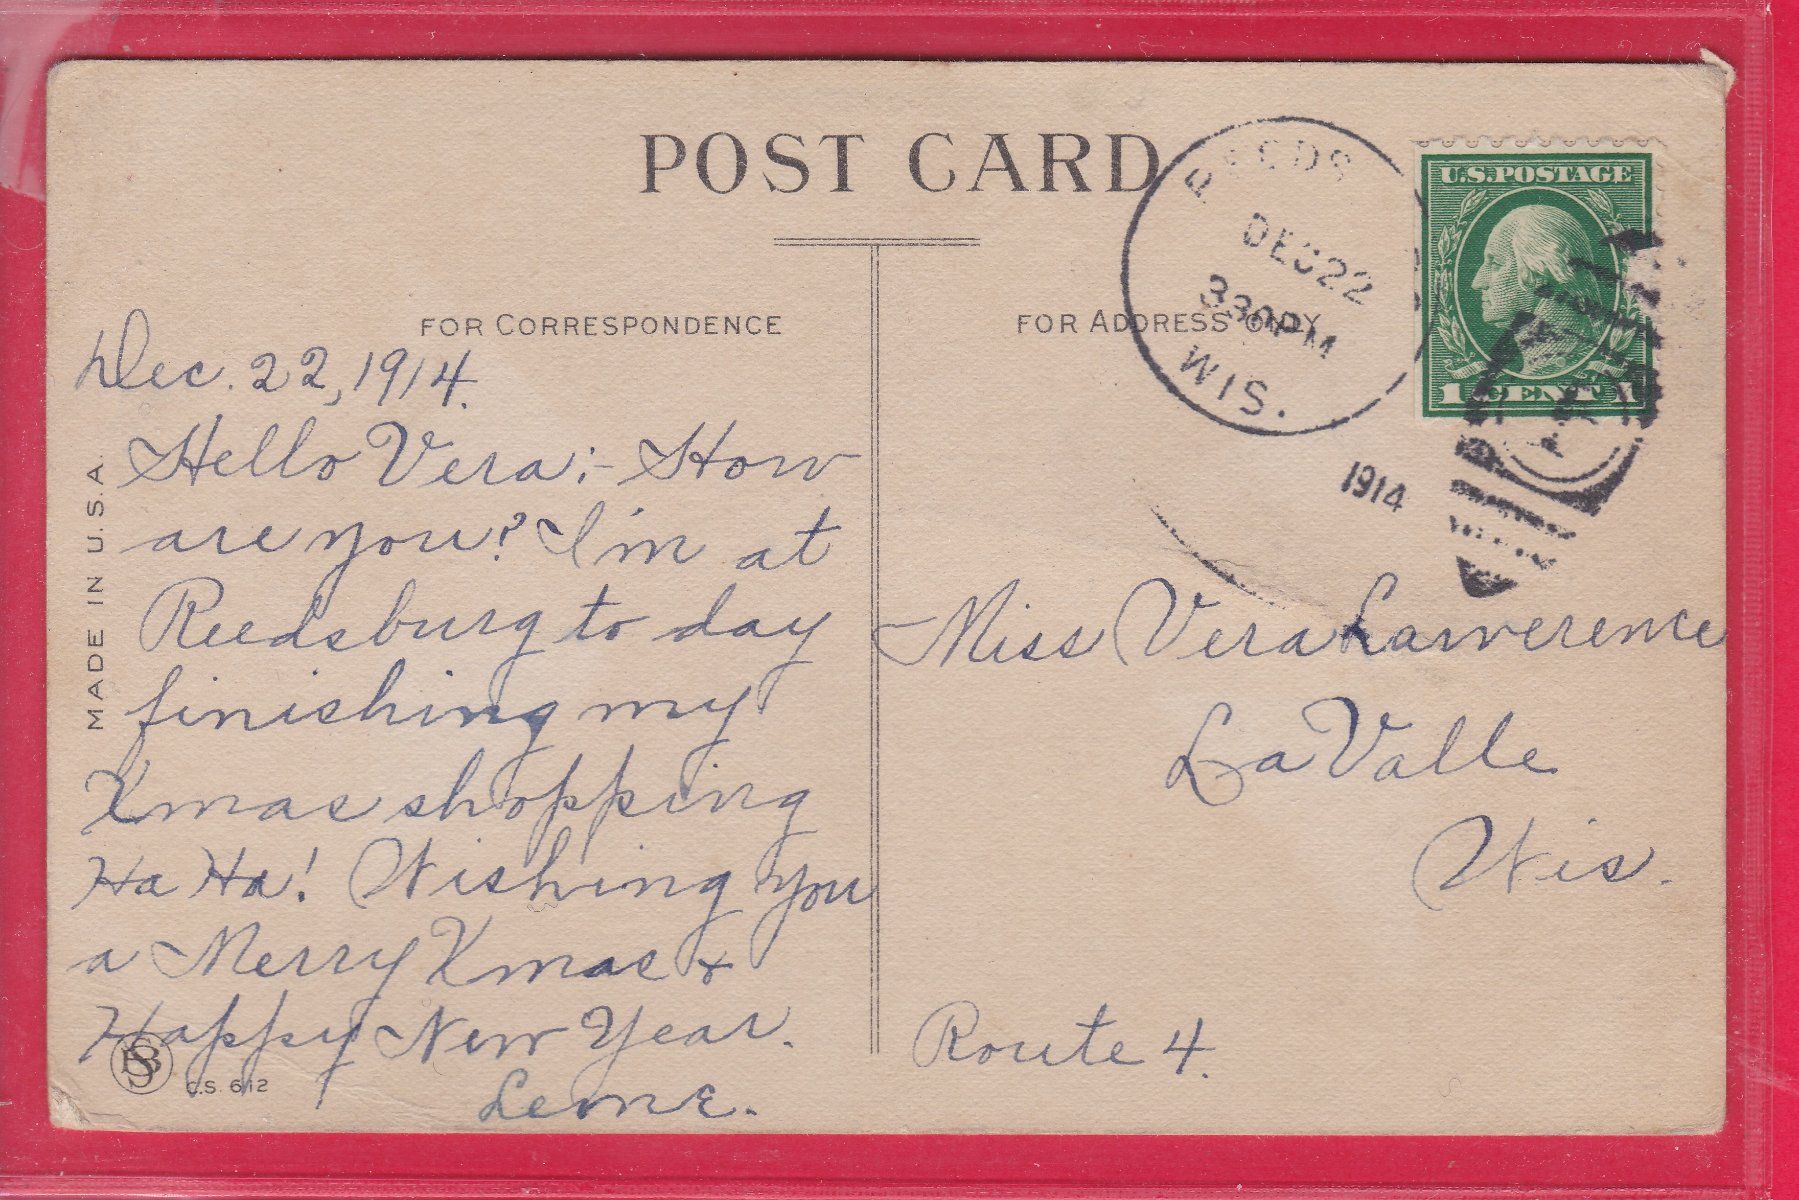 POST CARD
FOR CORRESPONDENCE
FOR ADDRESS ONLY
DEC 22
330PM
WIS.
1914
U.S. POSTAGE
1 CENT 1
MADE IN U.S.A.
Dec. 22, 1914.
Hello Vera:- How
are you? I'm at
Reedsburg to day
finishing my
Xmas shopping
Ha Ha! Wishing you
a Merry Xmas &
Happy New Year.
Leone.
Miss Vera Lawverence
LaValle
Wis.
Route 4.
C.S. 612